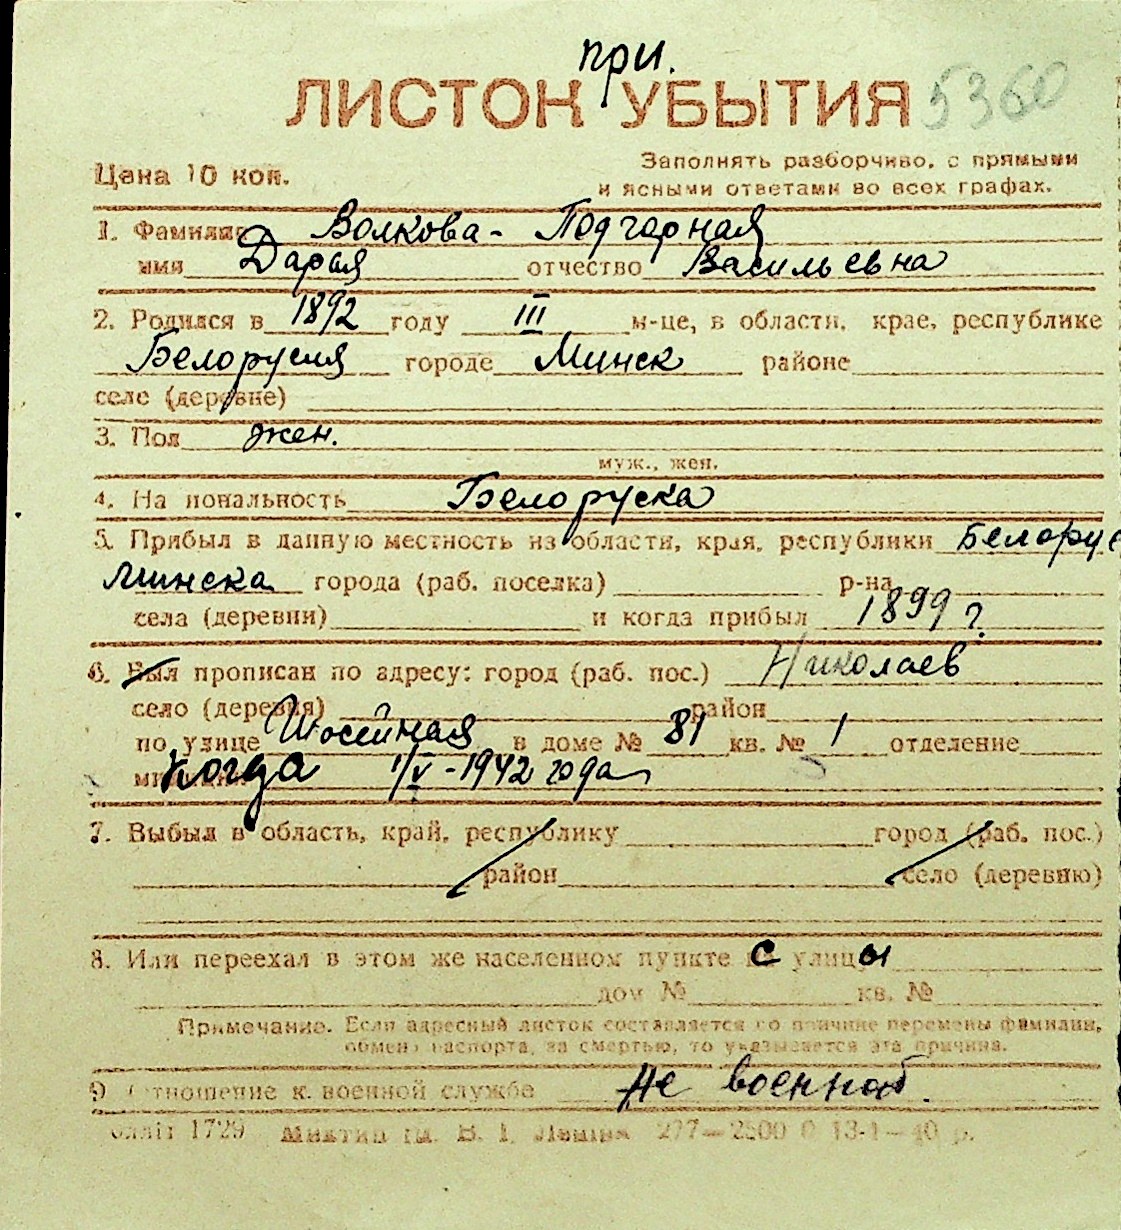 при.
ЛИСТОК УБЫТИЯ 5360
Цена 10 коп.
Заполнять разборчиво, с прямыми
и ясными ответами во всех графах.
1. Фамилия Волкова - Подчарная
имя Дарья отчество Васильевна
2. Родился в 1892 году III м-це, в области, крае, республике
Белорусия городе Минск районе
селе (деревне)
3. Пол жен.
муж., жен.
4. На иональность Белоруска
5. Прибыл в данную местность из области, края, республики Белорус
Минска города (раб. поселка) р-на
села (деревни) и когда прибыл 1899 г.
6. Был прописан по адресу: город (раб. пос.) Николаев
село (деревня) район
по улице Шосейная в доме № 81 кв. № 1 отделение
Когда 1/V - 1942 года
7. Выбыл в область, край, республику город (раб. пос.)
район село (деревню)
8. Или переехал в этом же населенном пункте с улицы
дом № кв. №
Примечание. Если адресный листок составляется по причине перемены фамилии,
обмена паспорта, за смертью, то указывается эта причина.
9 Отношение к военной службе Не военнооб.
1729 им. В. І. Леніна 277—2500 0 13-1—40 р.